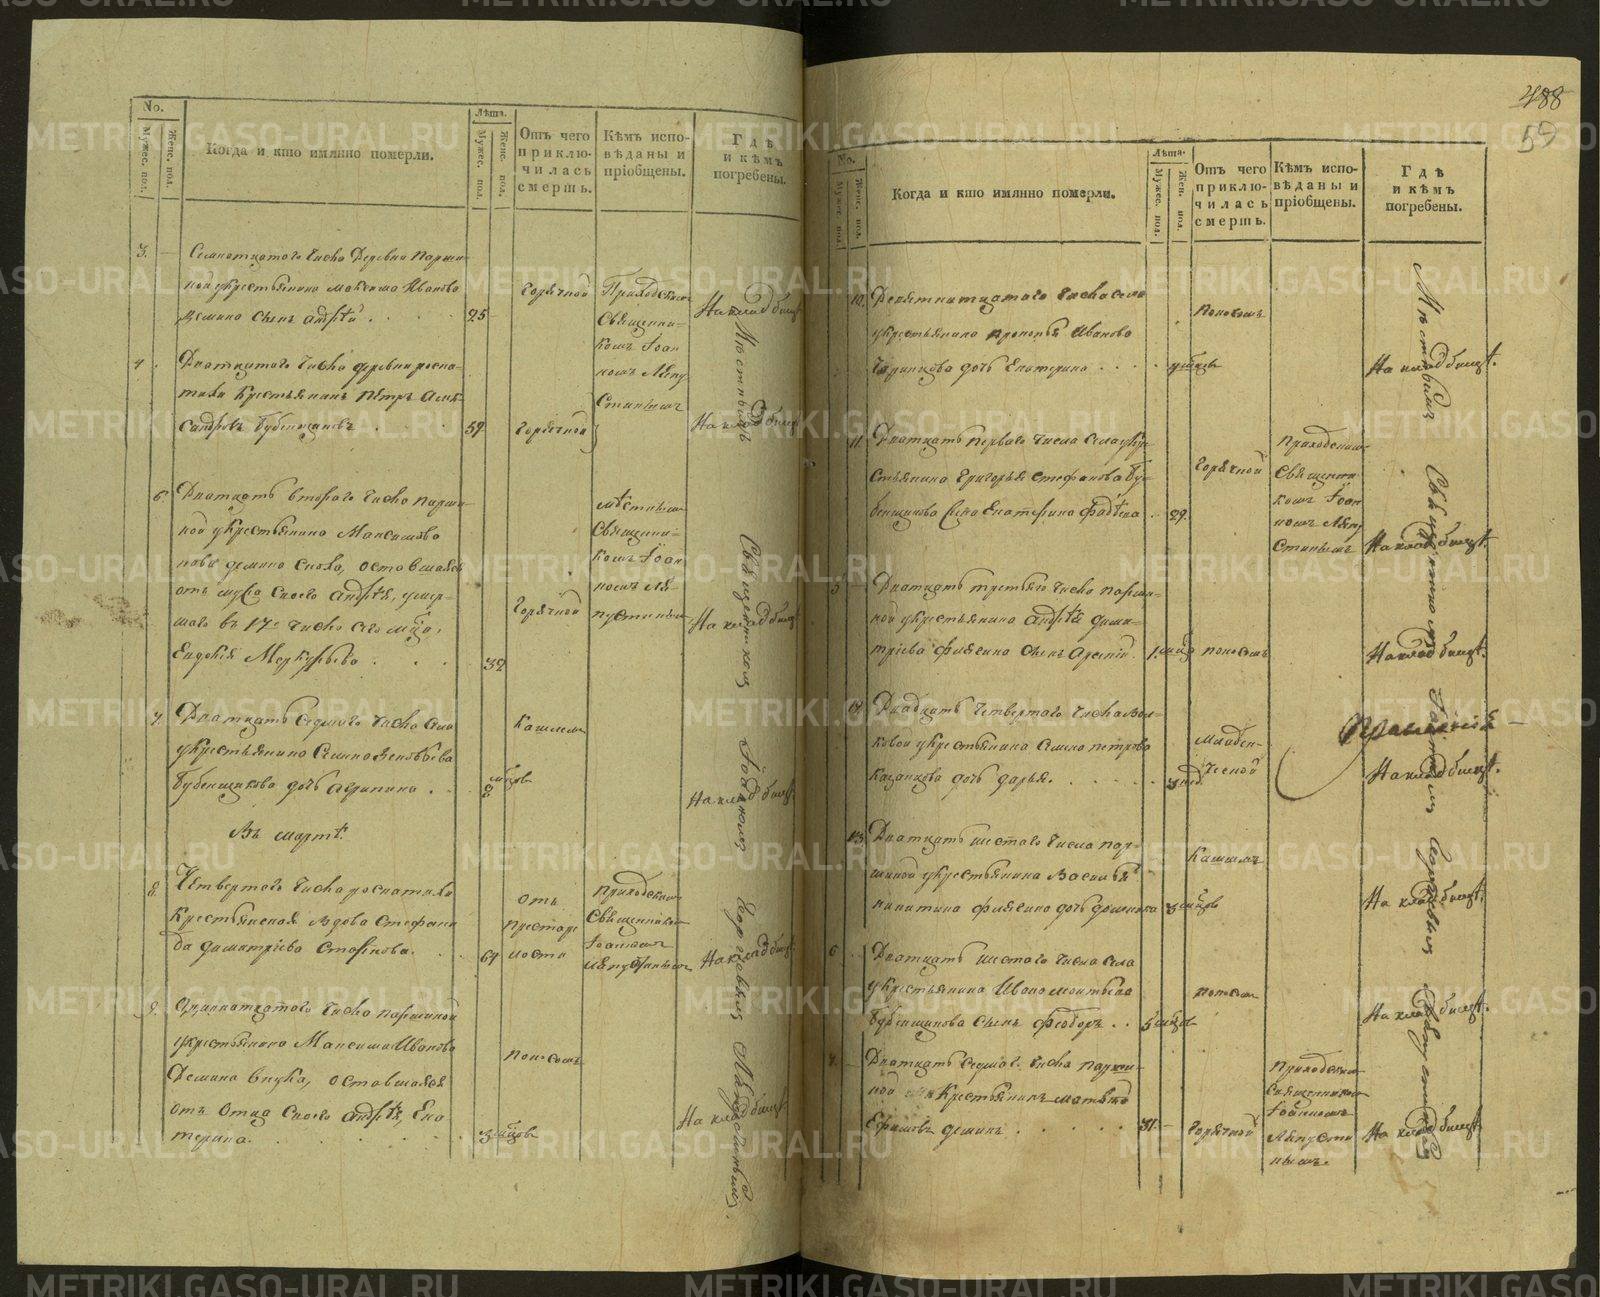 No.
Мужес. пол.
Женс. пол.
Когда и кто имянно померли.
Лѣта.
Мужес. пол.
Женс. пол.
Отъ чего
приклю-
чилась
смерть.
Кѣмъ испо-
вѣданы и
пріобщены.
Гдѣ
и кѣмъ
погребены.
3.
Семнатцатого числа Деревни Парши-
ной у крестьянина Максима Иванова
Демина сынъ Андрѣй
25
Горячкой
Приходскимъ
Священни-
комъ Іоан
номъ Ляпу
стинымъ
На кладбищѣ
4
Дватцатого числа деревни
Крестьянинъ Пётръ Алек-
сандровъ Бубенщиковъ
59
Горячкой
На кладбищѣ
6.
Дватцать второго числа Парши-
ной у крестьянина Максима Ива
нова Демина сноха, оставшаяся
отъ мужа своего Андрѣя, умер-
шаго въ 17е число сего мѣца,
Евдокія Меркурьева
32
Горячкой
мѣстнымъ
Священни-
комъ Іоан
номъ Ля-
пустинымъ
На кладбищѣ
7.
Дватцать седмого числа села
у крестьянина Семиона Зеновьева
Бубенщикова дочь Агрипина
мѣцовъ
Кашлемъ
На кладбищѣ
Въ мартѣ
8
Четвертого числа
Крестьянская вдова Стефани
да Димитріева Старкова.
64
отъ
престаре
лости
Приходскимъ
Священникомъ
Іоанномъ
Ляпустинымъ
На кладбищѣ
9.
Одиннатцатого числа Паршиной
у крестьянина Максима Иванова
Демина внука, оставшаяся
отъ отца своего Андрѣя, Ека
терина.
3 мѣцовъ
поносомъ
На кладбищѣ
Мѣстнымъ Священникомъ Іоанномъ Георгіевымъ Ляпустинымъ.
488
59
No.
Мужес. пол.
Женс. пол.
Когда и кто имянно померли.
Лѣта.
Мужес. пол.
Жен. пол.
Отъ чего
приклю-
чилась
смерть.
Кѣмъ испо-
вѣданы и
пріобщены.
Гдѣ
и кѣмъ
погребены.
10.
Девятнатцатого числа села
у крестьянина Прокопья Иванова
дочь Екатерина
мѣцовъ
поносомъ
На кладбищѣ.
11.
Дватцать перваго числа села у кре-
стьянина Григорья Стефанова Бу-
бенщикова жена Екатерина Фадѣева
29.
Горячкой
Приходскимъ
Священни
комъ Іоан
номъ Ляпу
стинымъ
На кладбищѣ.
5
Дватцать третьяго числа Парши-
ной у крестьянина Андрѣя Дими-
тріева сынъ Арсеній
1. мѣцъ
поносомъ
На кладбищѣ.
12
Двадцать четвертого числа
у крестьянина Семиона Петрова
Казанцова дочь Дарья.
3 нед.
младен-
ческой
На кладбищѣ.
13.
Дватцать шестаго числа Пар-
шиной у крестьянина Василья
Никитина дочь Домника
3 мѣцовъ
Кашлемъ
На кладбищѣ.
6
Дватцать шестаго числа села
у крестьянина Ивана Матвѣева
Бубенщикова сынъ Феодоръ
5 мѣцовъ
поносомъ
На кладбищѣ.
7.
Дватцать седмаго числа Парши-
ной Крестьянинъ Матвѣй
Ефимовъ Деминъ
51
Горячкой
Приходскимъ
Священникомъ
Іоанномъ
Ляпусти
нымъ.
На кладбищѣ.
Мѣстнымъ Священникомъ Іоанномъ Георгіевымъ Ляпустинымъ
METRIKI.GASO-URAL.RU